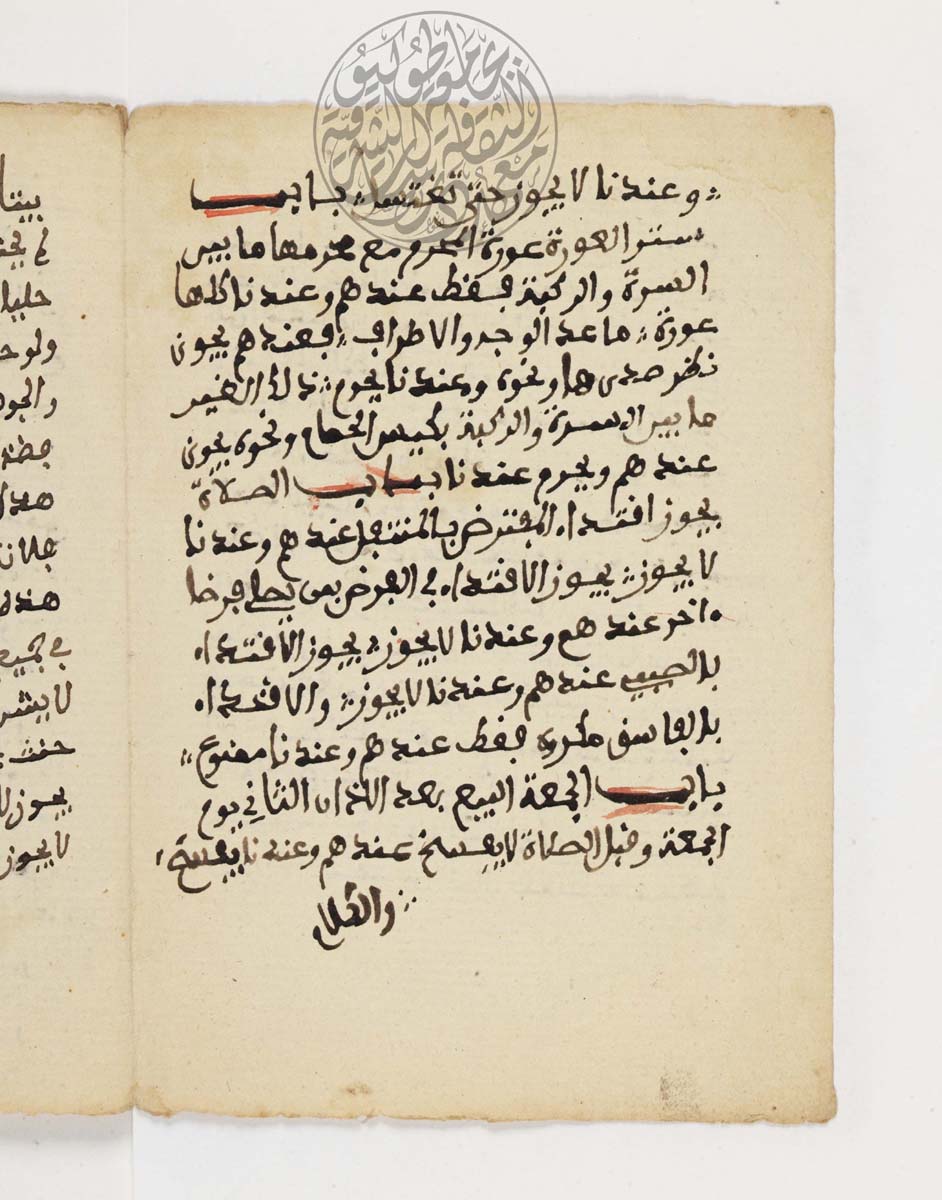 وعندنا لا يجوز حتى تغتسل باب
ستر العورة عورة المحرم مع محرمها ما بين
السرة والركبة فقط عندهم وعندنا كلها
عورة ما عدا الوجه والاطراف فعندهم يجوز
نظر صدرها ونحوه وعندنا يحرم ذلك الغير
ما بين السرة والركبة بكيس الحمام ونحوه يجوز
عندهم ويحرم عندنا باب الصلاة
يجوز اقتداء المفترض بالمتنفل عندهم وعندنا
لا يجوز يجوز الاقتداء في الفرض بمن يصلي فرضا
ءاخر عندهم وعندنا لا يجوز يجوز الاقتداء
بالصبي عندهم وعندنا لا يجوز والاقتداء
بالفاسق مكروه فقط عندهم وعندنا ممنوع
باب الجمعة البيع بعد الاذان الثاني يوم
الجمعة وقبل الصلاة لا يفسخ عندهم وعندنا يفسخ
بيتا
حليلا
ولو
لا يجوز